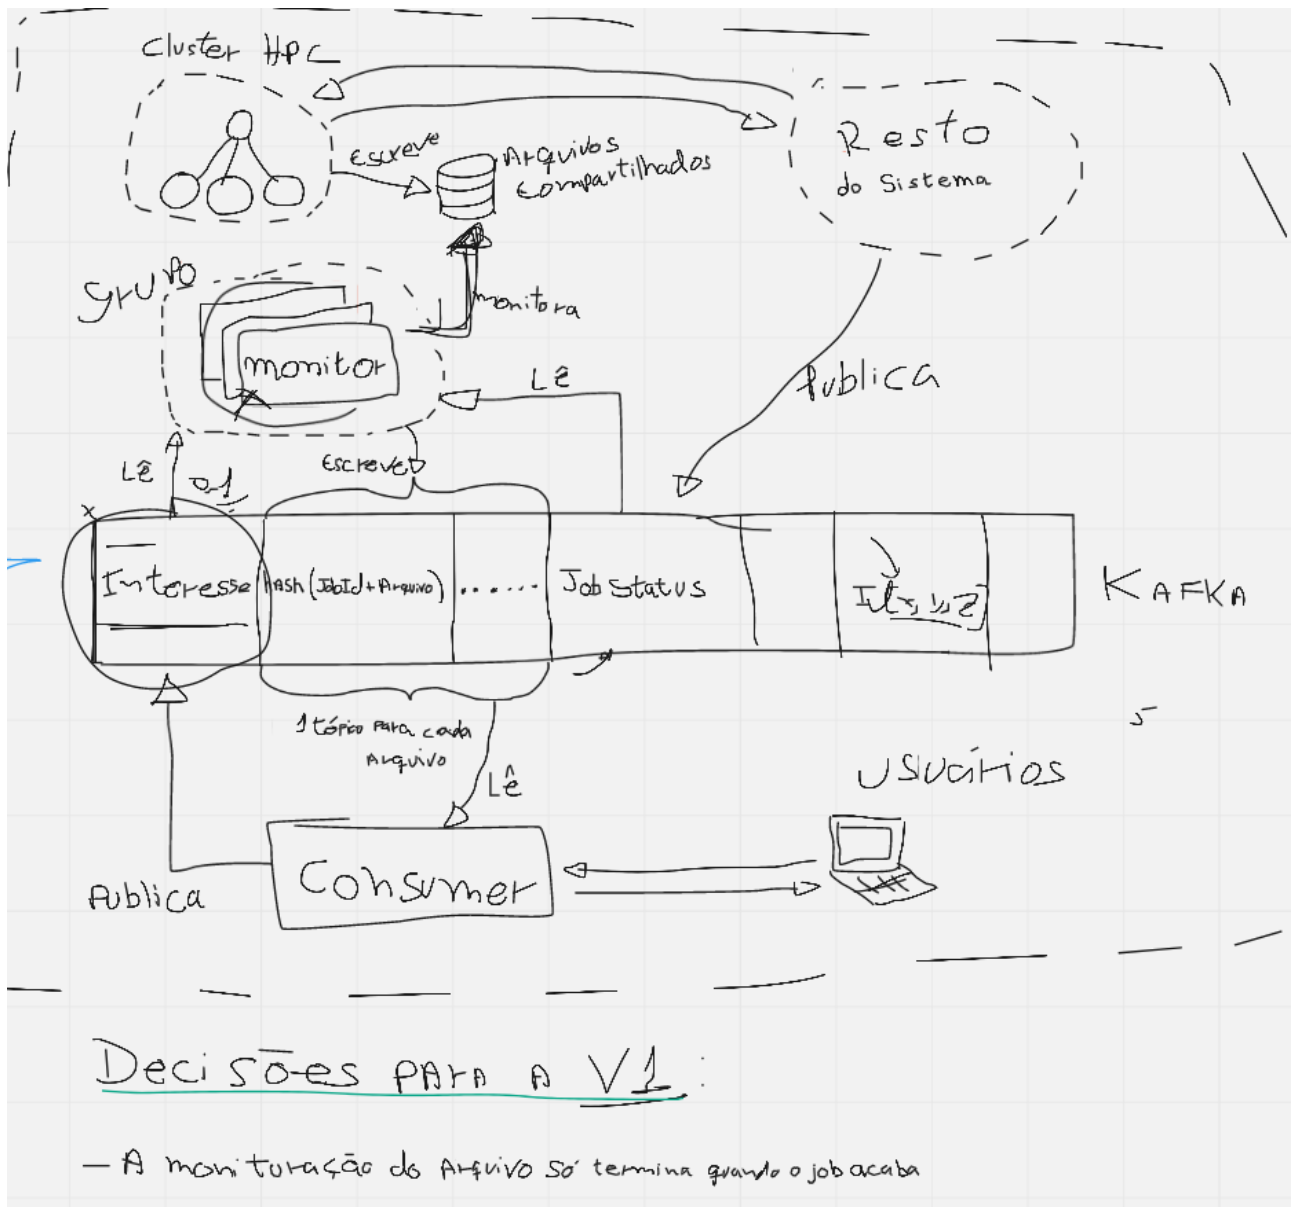 Cluster HPC
Escreve
Arquivos
compartilhados
Resto
do Sistema
grupo
monitora
monitor
Lê
Publica
Lê
Escreve
0-1
x
Interesse
HASH (JobId + Arquivo)
.......
Job Status
KAFKA
1 tópico para cada
Arquivo
5
Lê
Usuários
Consumer
Publica
Decisões para a V1:
- A monituração do Arquivo só termina quando o job acaba